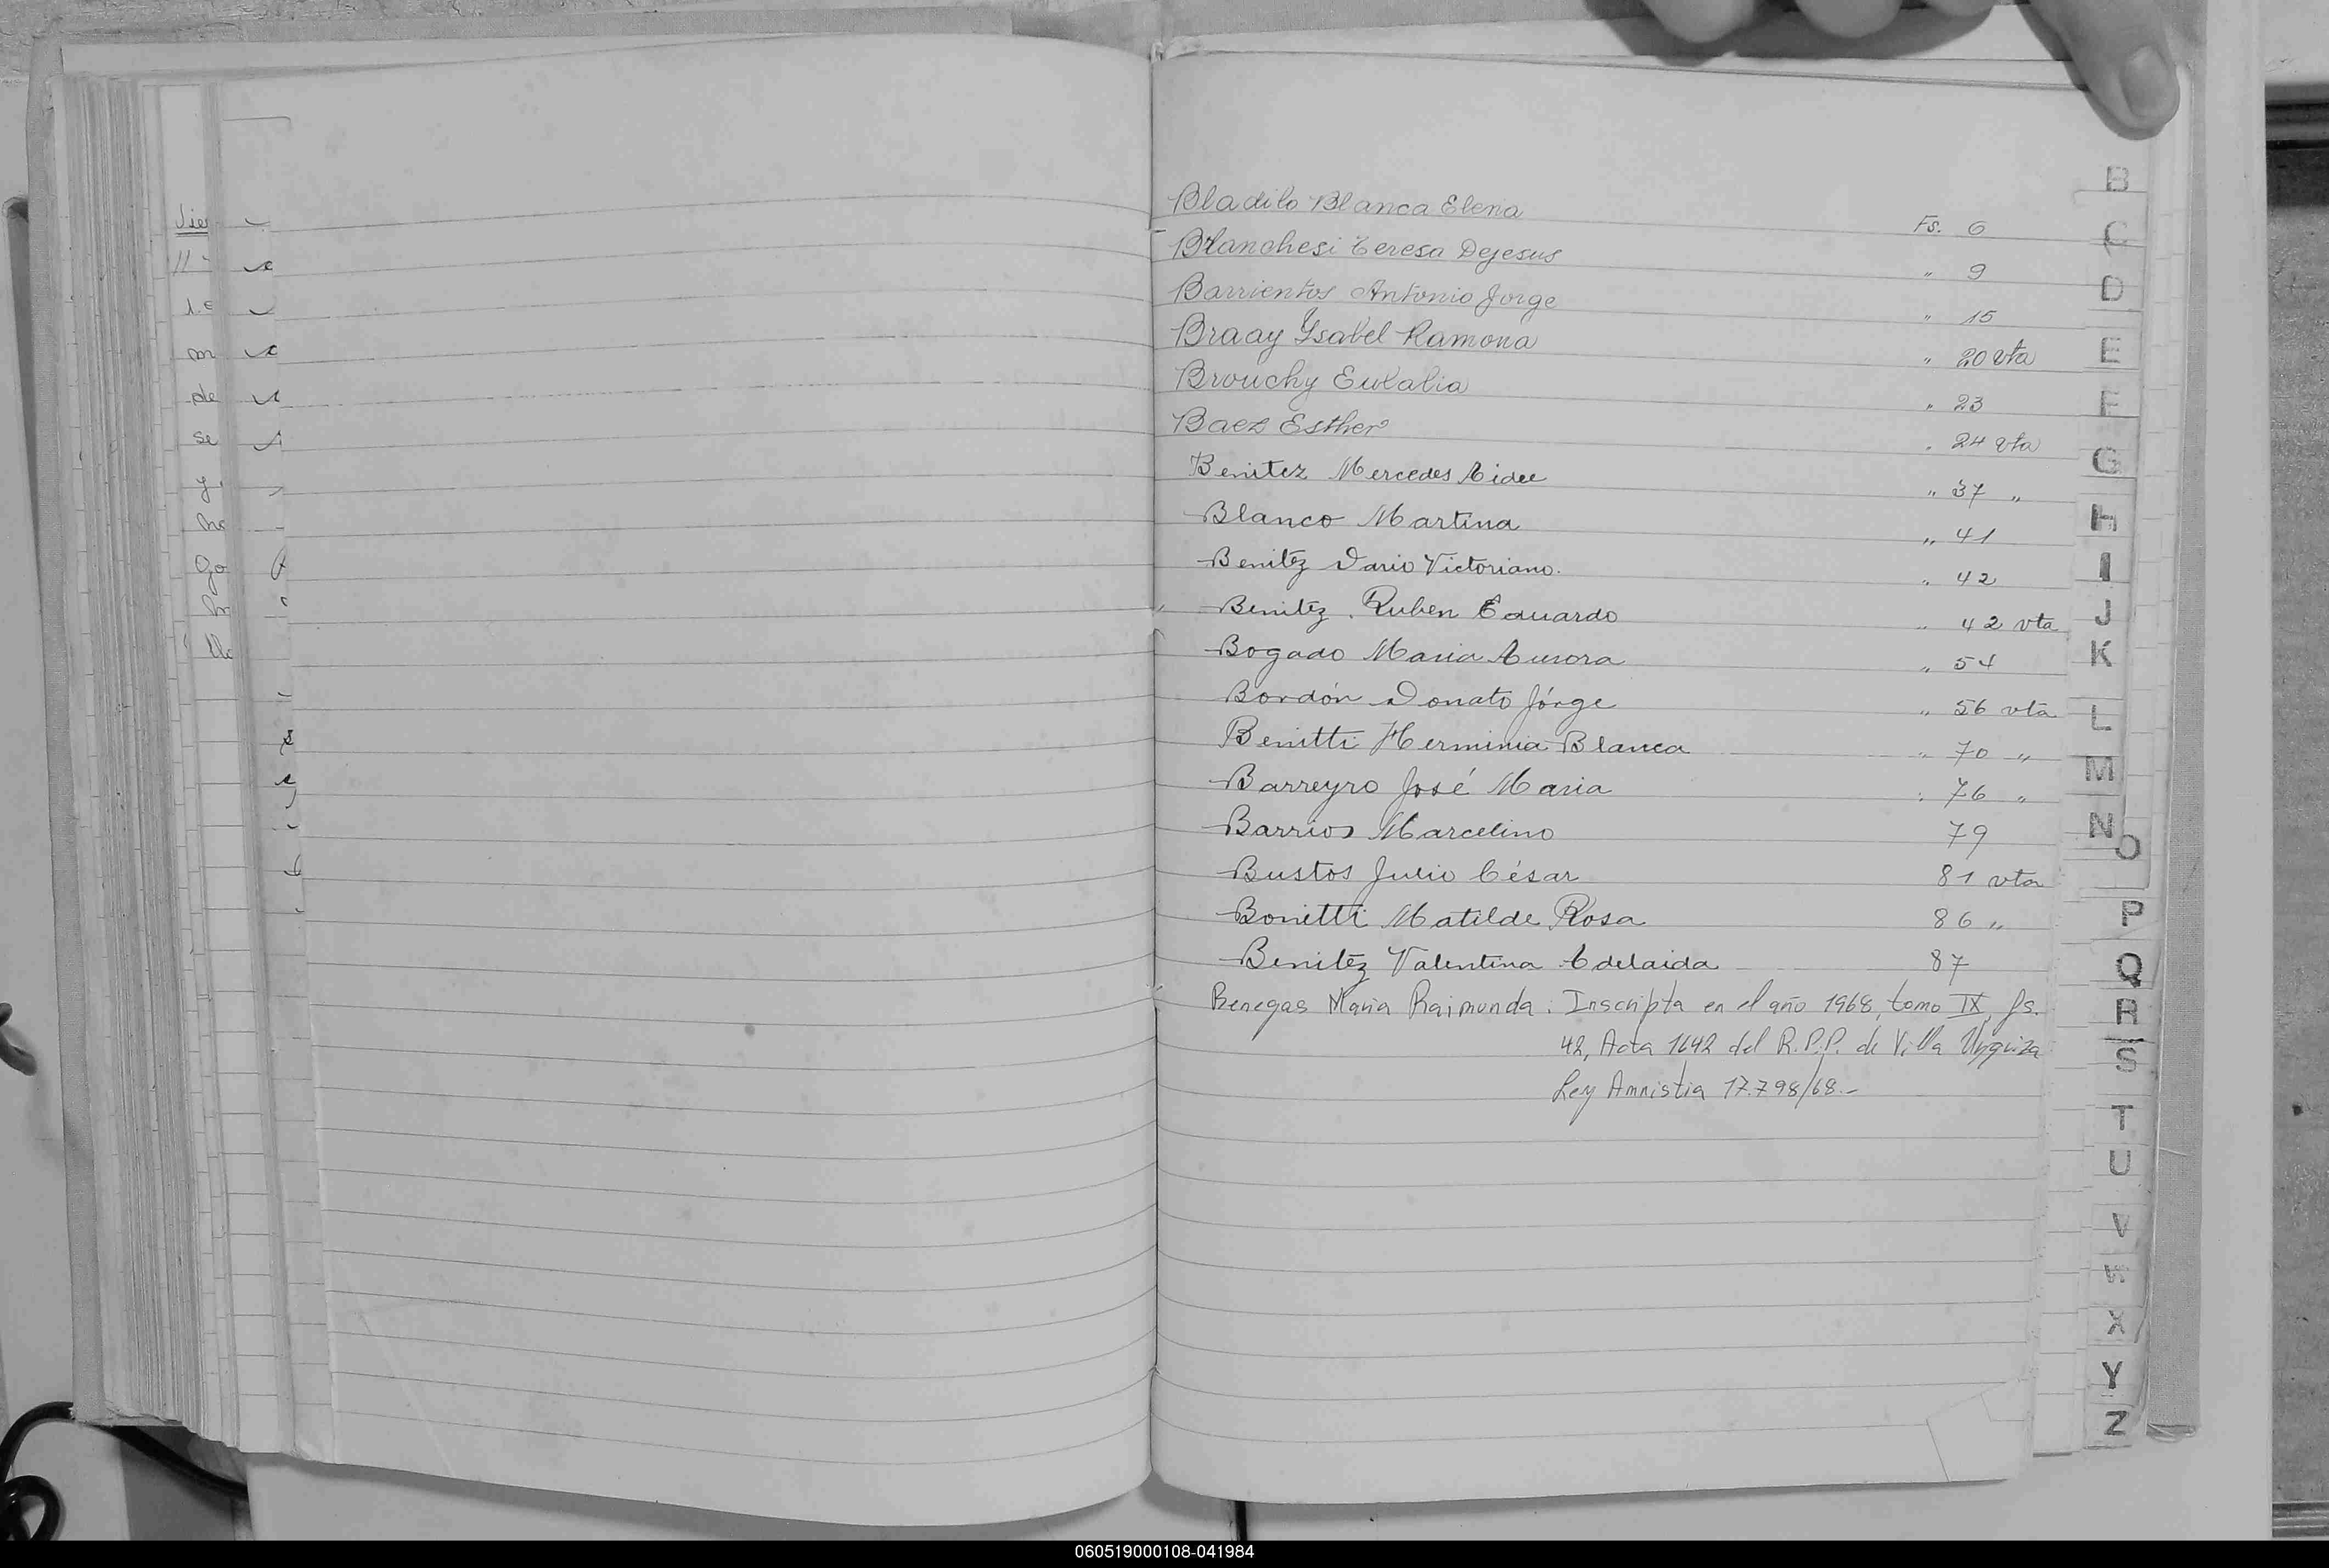 Bladilo Blanca Elena Fs. 6
Blanchesi Teresa Dejesus " 9
Barrientos Antonio Jorge " 15
Braay Ysabel Ramona " 20 vta
Brouchy Eulalia " 23
Baez Esther " 24 vta
Benitez Mercedes Aidee " 37 "
Blanco Martina " 41
Benitez Dario Victoriano. " 42
Benitez Ruben Eduardo " 42 vta
Bogado Maria Aurora " 54
Bordón Donato Jórge " 56 vta
Benitti Herminia Blanca " 70 "
Barreyro José Maria " 76 "
Barrios Marcelino 79
Bustos Julio César 81 vta
Bonitti Matilde Rosa 86 "
Benitez Valentina Adelaida 87
Benegas María Raimunda: Inscripta en el año 1968, tomo IX, fs.
42, Acta 1642 del R.P.P. de Villa Urquiza
Ley Amnistia 17.798/68.-
B
C
D
E
F
G
H
I
J
K
L
M
N
O
P
Q
R
S
T
U
V
W
X
Y
Z
060519000108-041984